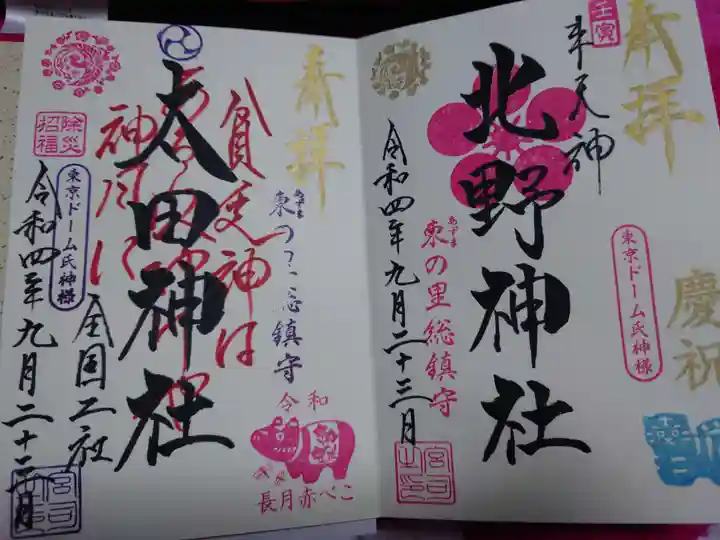 壬寅
奉拝
慶祝
東京ドーム氏神様
牛天神
北野神社
あずま
東の里総鎮守
令和四年九月二十三月
宮司之印
奉拝
あずま
東の
総鎮守
貧乏神は
太田神社
神風に
全国工社
除災
招福
東京ドーム氏神様
令和四年九月二十三月
令和
長月赤べこ